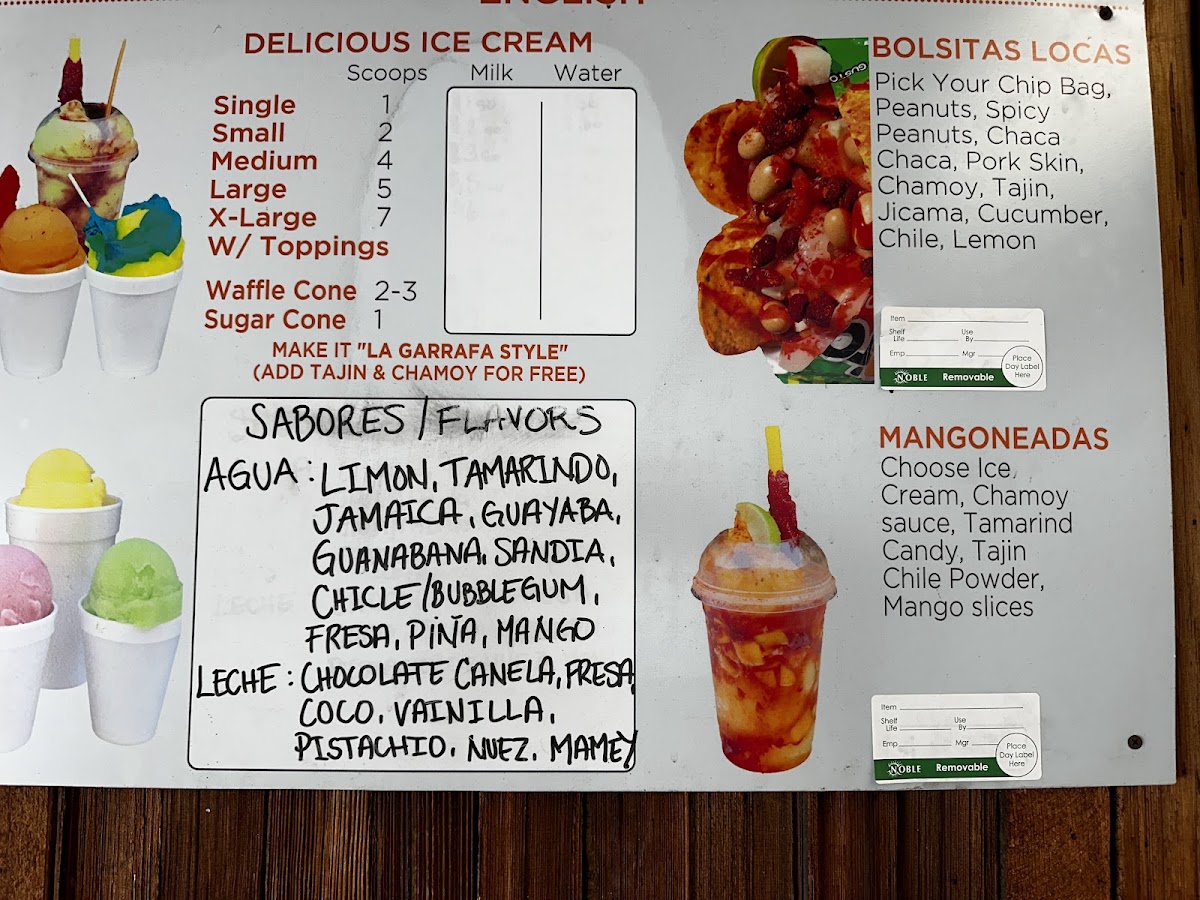 ENGLISH
DELICIOUS ICE CREAM
Scoops Milk Water
Single 1
Small 2
Medium 4
Large 5
X-Large 7
W/ Toppings
Waffle Cone 2-3
Sugar Cone 1
MAKE IT "LA GARRAFA STYLE"
(ADD TAJIN & CHAMOY FOR FREE)
SABORES/FLAVORS
AGUA: LIMON, TAMARINDO,
JAMAICA, GUAYABA,
GUANABANA, SANDIA,
CHICLE/BUBBLEGUM,
FRESA, PIÑA, MANGO
LECHE: CHOCOLATE CANELA, FRESA
COCO, VAINILLA,
PISTACHIO, NUEZ, MAMEY
BOLSITAS LOCAS
Pick Your Chip Bag,
Peanuts, Spicy
Peanuts, Chaca
Chaca, Pork Skin,
Chamoy, Tajin,
Jicama, Cucumber,
Chile, Lemon
Item
Shelf Life Use By
Emp Mgr
Place
Day Label
Here
NOBLE Removable
MANGONEADAS
Choose Ice
Cream, Chamoy
sauce, Tamarind
Candy, Tajin
Chile Powder,
Mango slices
Item
Shelf Life Use By
Emp Mgr
Place
Day Label
Here
NOBLE Removable